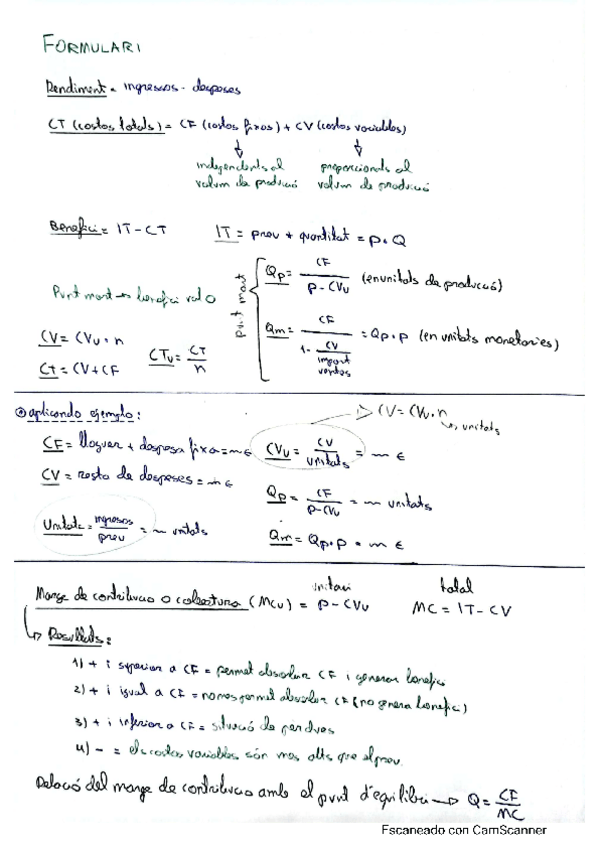 FORMULARI
Rendiment = ingressos - despeses
CT (costos totals) = CF (costos fixos) + CV (costos variables)
independents al proporcionals al
volum de producció volum de producció
Benefici = IT - CT IT = preu * quantitat = p · Q
Punt mort → benefici val 0
CV = CVu · n
CTu = CT / n
CT = CV + CF
punt mort
Qp = CF / p - CVu (en unitats de producció)
Qm = CF / 1 - CV / import ventas = Qp · p (en unitats monetaries)
aplicando ejemplo:
CV = CVu · n
unitats
CF = lloguer + despesa fixa = m € CVu = CV / unitats = m €
CV = resta de despeses = m €
Qp = CF / p - CVu = m unitats
Unitats = ingresos / preu = m unitats
Qm = Qp · p = m €
unitari total
Marge de contribucio o cobertura (MCu) = p - CVu MC = IT - CV
Resultats:
1) + i superior a CF = permet absorbir CF i generar benefici
2) + i igual a CF = nomes permet absorbir CF (no genera benefici)
3) + i inferior a CF = situació de perdues
4) - = els costos variables són mes alts que el preu.
Relació del marge de contribucio amb el punt d'equilibri → Q = CF / MC
Escaneado con CamScanner